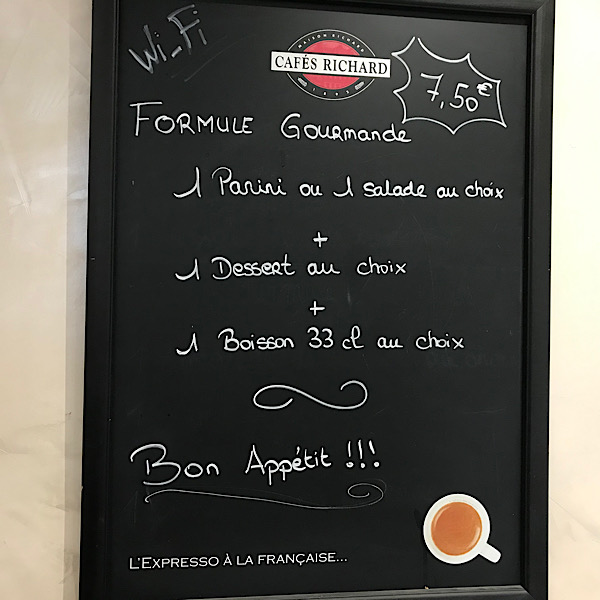 Wi-Fi
MAISON RICHARD
CAFÉS RICHARD
1892
7,50€
FORMULE GOURMANDE
1 Panini ou 1 salade au choix
+
1 Dessert au choix
+
1 Boisson 33 cl au choix
Bon Appétit !!!
L'EXPRESSO À LA FRANÇAISE...